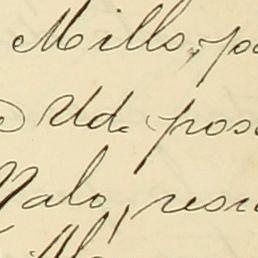 Mills, po
Ud. pos
Valo, resu